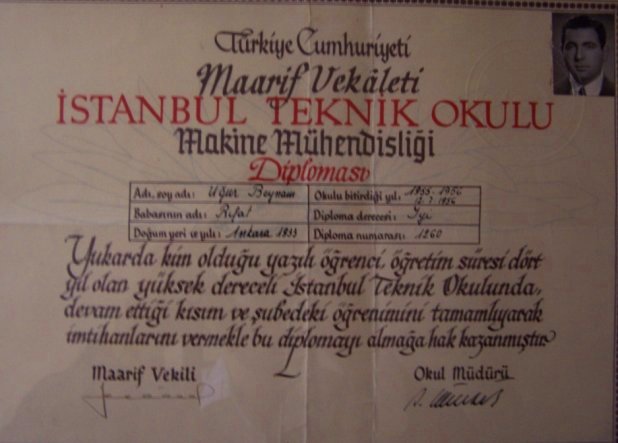 Türkiye Cumhuriyeti
Maarif Vekâleti
İSTANBUL TEKNİK OKULU
Makine Mühendisliği
Diploması
Adı, soy adı: Uğur Beynam
Okulu bitirdiği yıl: 1955-1956
12.7.1956
Babasının adı: Rıfat
Diploma derecesi: İyi
Doğum yeri ve yılı: Ankara 1933
Diploma numarası: 1260
Yukarda kim olduğu yazılı öğrenci, öğretim süresi dört
yıl olan yüksek dereceli İstanbul Teknik Okulunda,
devam ettiği kısım ve şubedeki öğrenimini tamamlıyarak
imtihanlarını vermekle bu diplomayı almağa hak kazanmıştır
Maarif Vekili
Okul Müdürü